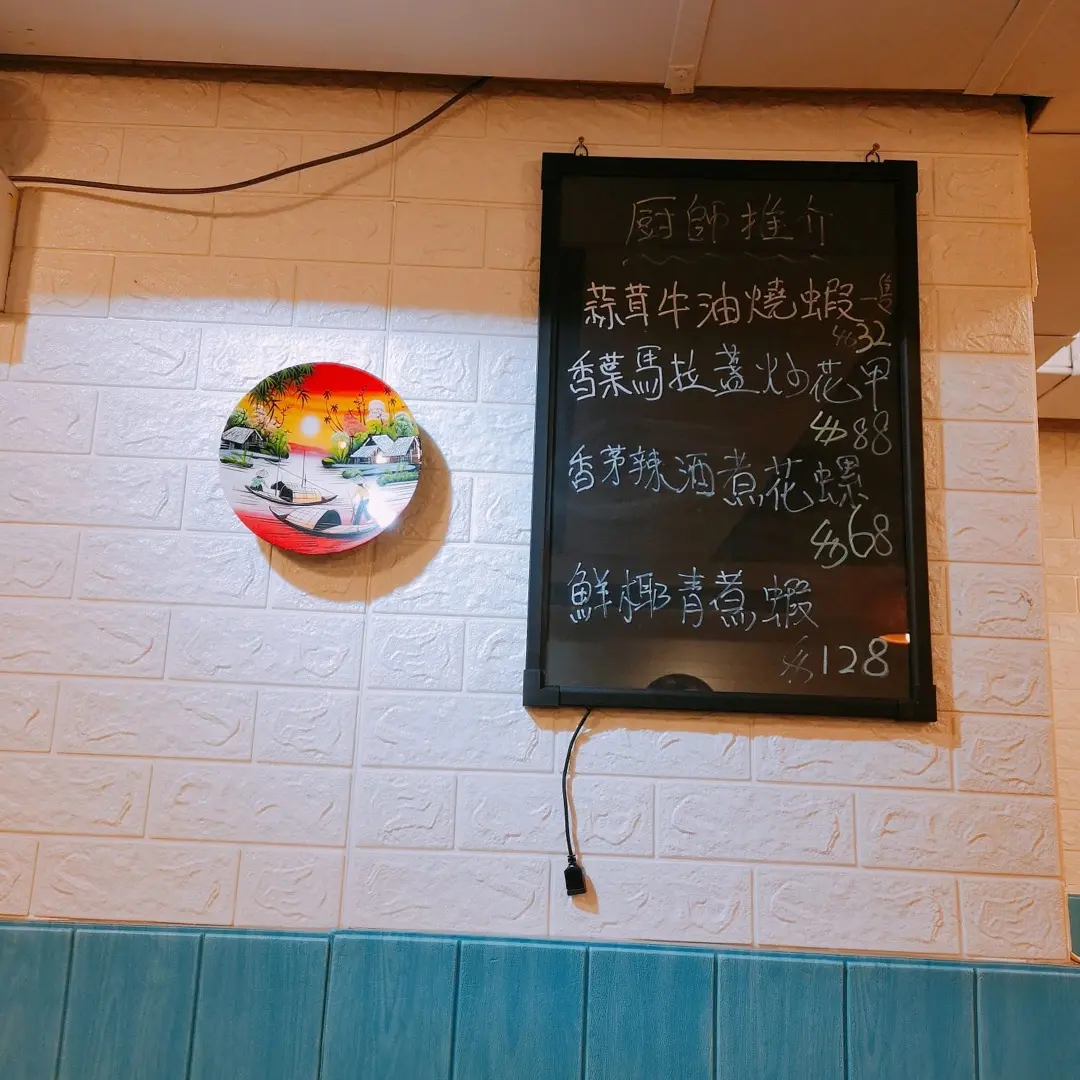 厨師推介
蒜茸牛油燒蝦一隻
$32
香葉馬拉盞炒花甲
$88
香茅辣酒煮花螺
$68
鮮椰青煮蝦
$128